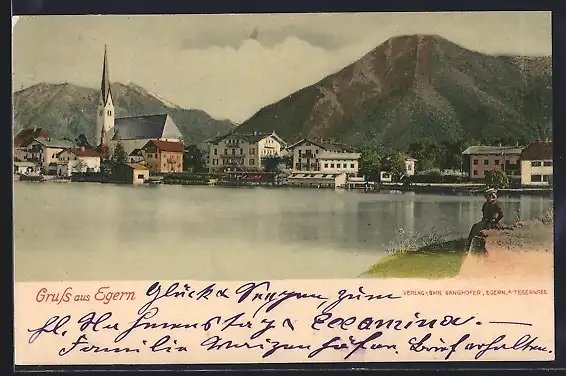 Gruß aus Egern
VERLAG: EMIL GANGHOFER, EGERN, A/ TEGERNSEE
Glück & Segen zum
hl. Nahmenstage &
Familie Brief erhalten.